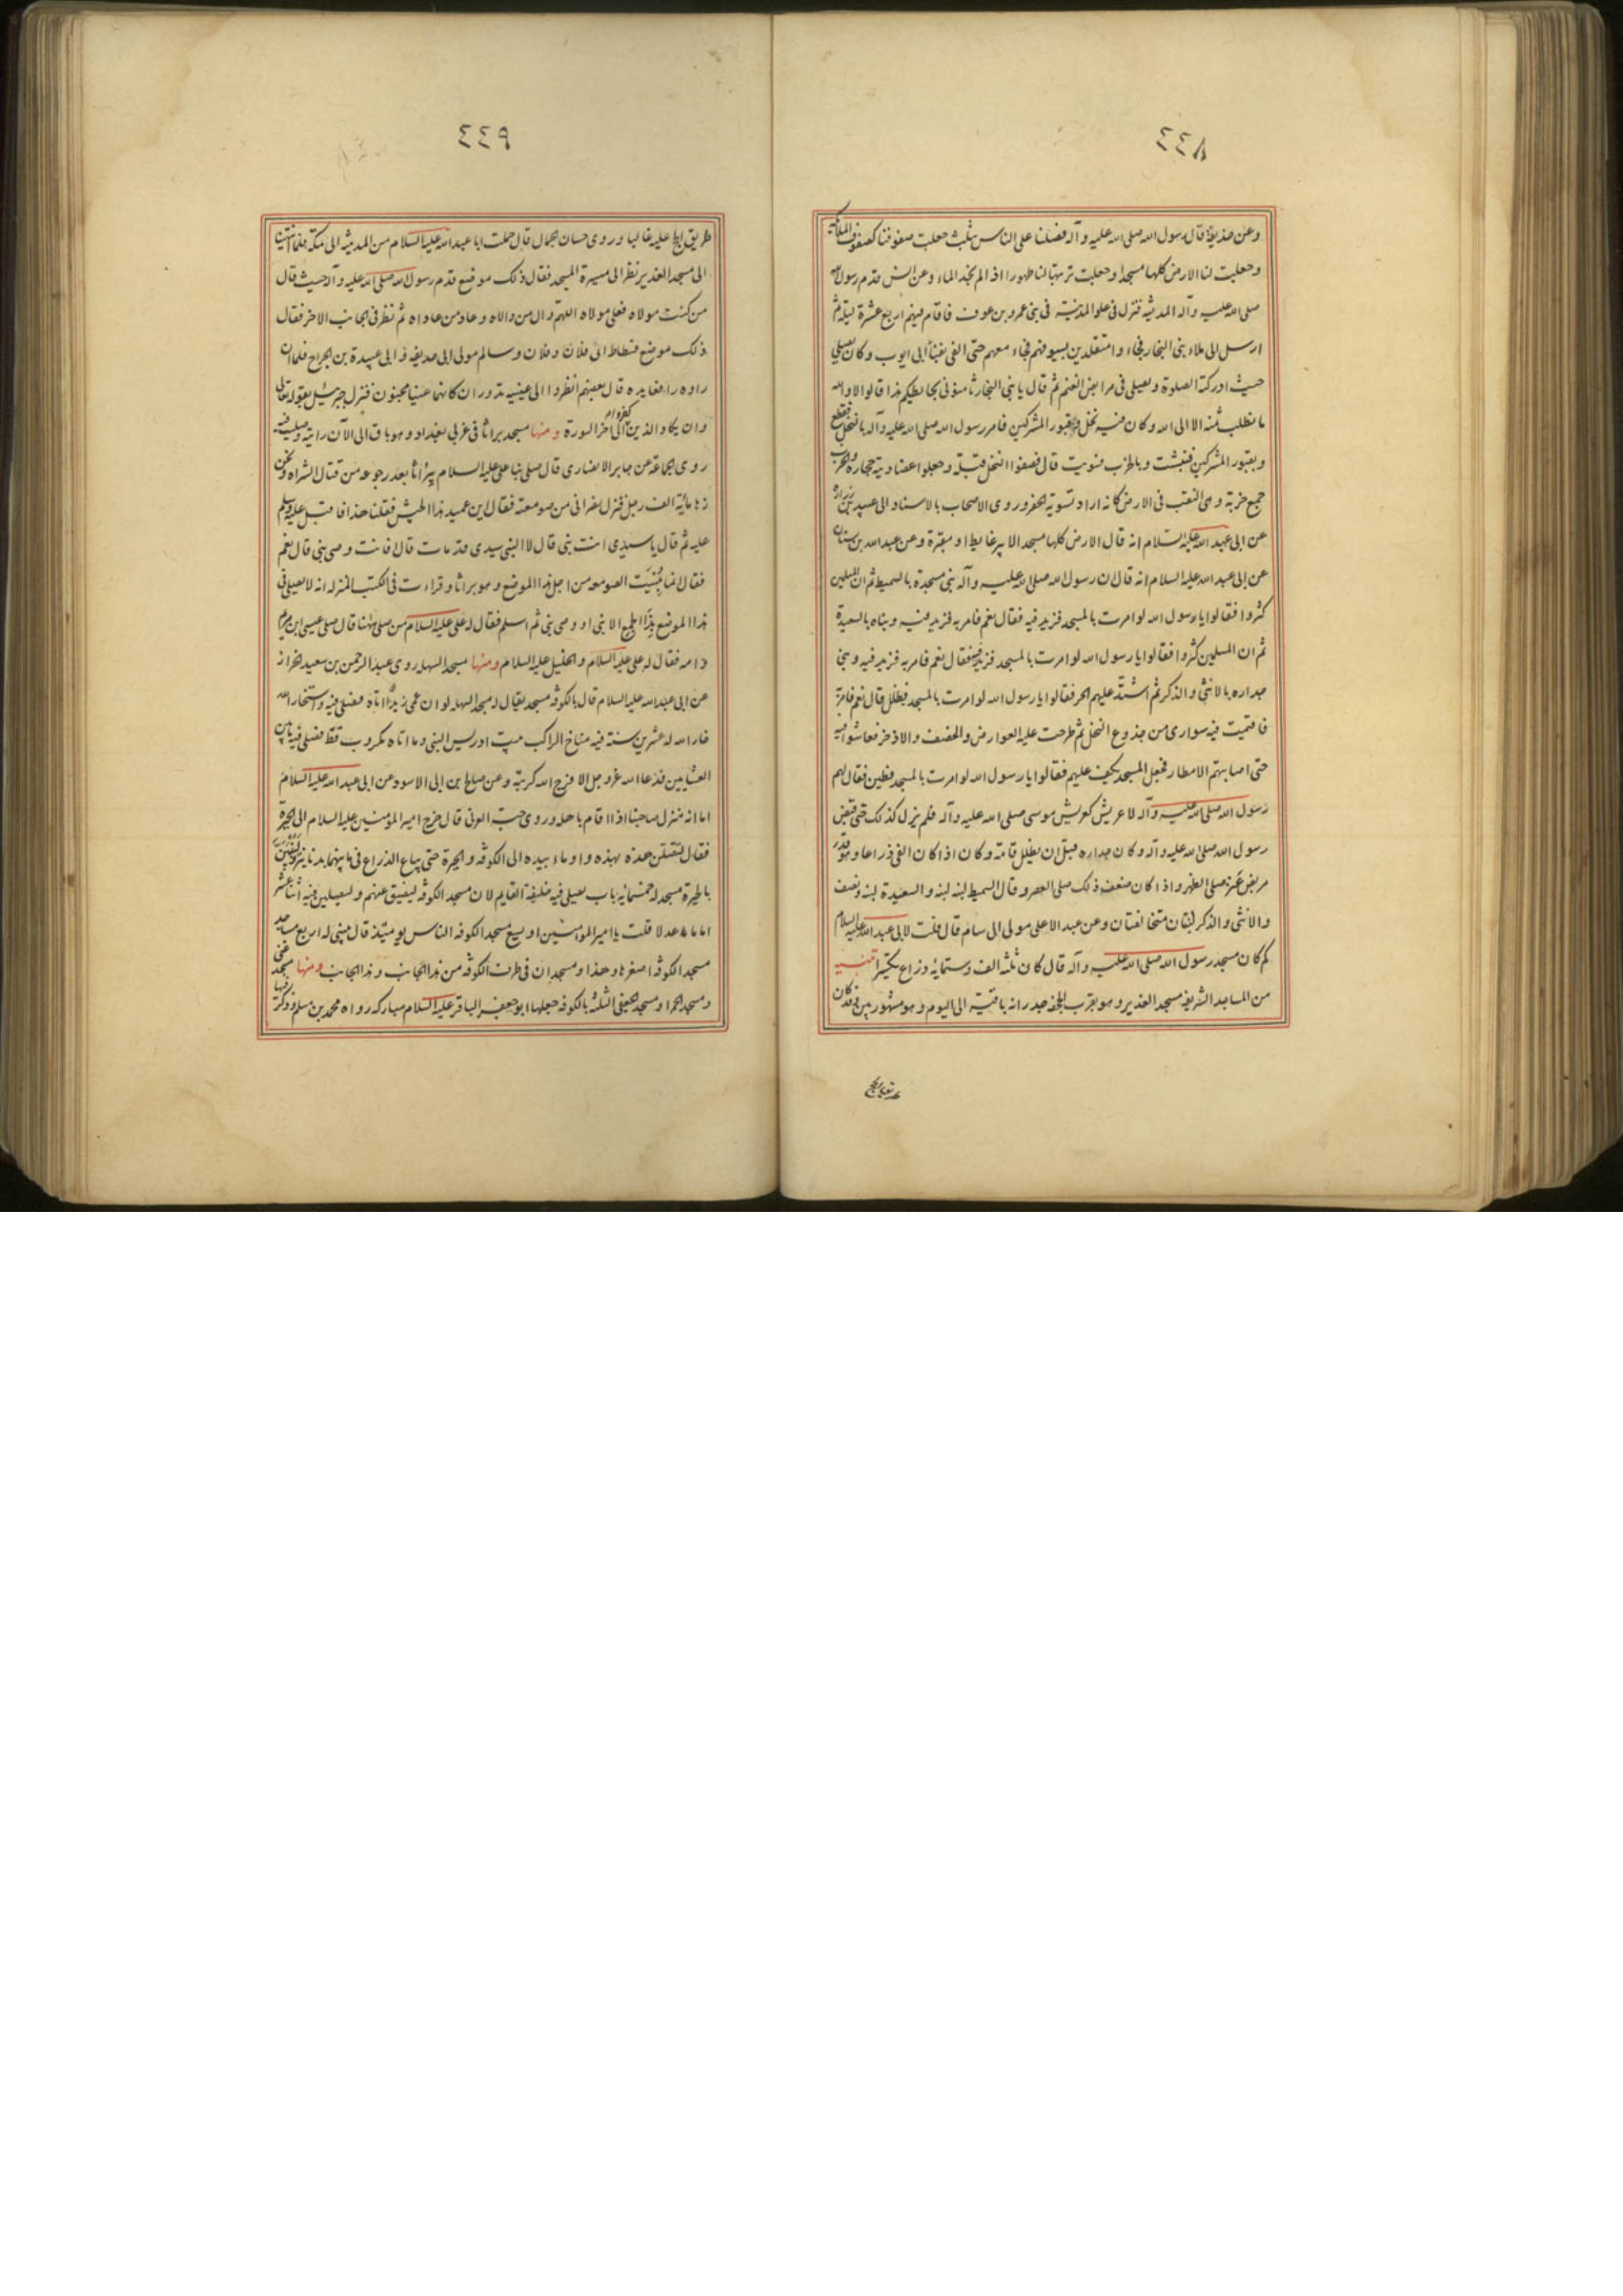 ٤٤٨
وعن حذيفة قال رسول الله صلى الله عليه وآله فضلنا على الناس بثلث جعلت صفوفنا كصفوف الملائكة
وجعلت لنا الارض كلها مسجدا وجعلت تربتها لنا طهورا اذا لم نجد الماء وعن انس قدم رسول الله
صلى الله عليه وآله المدينة فنزل في علو المدينة في بني عمرو بن عوف فاقام فيهم اربع عشرة ليلة ثم
ارسل الى ملاء بني النجار فجاء وا متقلدين بسيوفهم فجاء معهم حتى القى بفناء ابي ايوب وكان يصلي
حيث ادركته الصلوة ويصلي في مرابض الغنم ثم قال يا بني النجار ثامنوني بحائطكم هذا قالوا لا والله
ما نطلب ثمنه الا الى الله وكان فيه نخل وقبور المشركين فامر رسول الله صلى الله عليه وآله بالنخل فقطع
وبقبور المشركين فنبشت وبالخرب فسويت قال فصفوا النخل قبلة وجعلوا عضاديته حجارة والخرب
جمع خربة وهي النقب في الارض كانه اراد تسوية الحفر وروى الاصحاب بالاسناد الى عبيد بن زرارة
عن ابي عبد الله عليه السلام انه قال الارض كلها مسجد الا بير غايط او مقبرة وعن عبد الله بن سنان
عن ابي عبد الله عليه السلام انه قال ان رسول الله صلى الله عليه وآله بنى مسجده بالسميط ثم ان المسلمين
كثروا فقالوا يا رسول الله لو امرت بالمسجد فزيد فيه فقال نعم فامر به فزيد فيه وبناه بالسعيدة
ثم ان المسلمين كثروا فقالوا يا رسول الله لو امرت بالمسجد فزيد فيه فقال نعم فامر به فزيد فيه وبنى
جداره بالانثى والذكر ثم اشتد عليهم الحر فقالوا يا رسول الله لو امرت بالمسجد فظلل قال نعم فامر به
فاقيمت فيه سواري من جذوع النخل ثم طرحت عليه العوارض والخصف والاذخر فعاشوا فيه
حتى اصابتهم الامطار فجعل المسجد يكف عليهم فقالوا يا رسول الله لو امرت بالمسجد فطين فقال لهم
رسول الله صلى الله عليه وآله لا عريش كعريش موسى صلى الله عليه وآله فلم يزل كذلك حتى قبض
رسول الله صلى الله عليه وآله وكان جداره قبل ان يظلل قامة وكان اذا كان الفي ذراعا وهو قدر
مربض عنز صلى الظهر واذا كان ضعف ذلك صلى العصر وقال السميط لبنة لبنة والسعيدة لبنة ونصف
والانثى والذكر لبنتان متخالفتان وعن عبد الاعلى مولى ال سام قال قلت لابي عبد الله عليه السلام
كم كان مسجد رسول الله صلى الله عليه وآله قال كان ثلثة الف وستماية ذراع تكسيرا تنبيه
من المساجد الشريفة مسجد الغدير وهو بقرب الجحفة جدرانه باقية الى اليوم وهو مشهور بين وقد كان
طريق الحج
٤٤٩
طريق الحج عليه غالبا وروى حسان الجمال قال حملت ابا عبد الله عليه السلام من المدينة الى مكة فلما انتهينا
الى مسجد الغدير نظر الى ميسرة المسجد فقال ذلك موضع قدم رسول الله صلى الله عليه وآله حيث قال
من كنت مولاه فعلي مولاه اللهم وال من والاه وعاد من عاداه ثم نظر في الجانب الاخر فقال
ذلك موضع فسطاط ابي فلان وفلان وسالم مولى ابي حذيفة وابي عبيدة بن الجراح فلما ان
راوه رافعا يده قال بعضهم انظروا الى عينيه تدوران كانهما عينا مجنون فنزل جبرئيل بقوله تعالى
وان يكاد الذين كفروا الى آخر السورة ومنها مسجد براثا في غربي بغداد وهو باق الى الآن رايته وصليت فيه
روى الجماعة عن جابر الانصاري قال صلى بنا علي عليه السلام ببراثا بعد رجوعه من قتال الشراة ونحن
زها مائة الف رجل فنزل نصراني من صومعته فقال اين عميد هذا الجيش فقلنا هذا فاقبل عليه وسلم
عليه ثم قال يا سيدي انت نبي قال لا النبي سيدي قد مات قال فانت وصي نبي قال نعم
فقال انما بُنِيَت الصومعه من اجل هذا الموضع وهو براثا وقراءت في الكتب المنزله انه لا يصلي في
هذا الموضع بذا الجمع الا نبي او وصي نبي ثم اسلم فقال له علي عليه السلام من صلى ههنا قال صلى عيسى ابن مريم
وامه فقال له علي عليه السلام والخليل عليه السلام ومنها مسجد السهله روى عبد الرحمن بن سعيد الخزاز
عن ابي عبد الله عليه السلام قال بالكوفه مسجد يقال له مسجد السهله لو ان عمي زيدا اتاه فصلى فيه واستجار الله
جار الله له عشرين سنة فيه مناخ الراكب وبيت ادريس النبي وما اتاه مكروب قط فصلى فيه ما بين
العشايين فدعا الله عز وجل الا فرج الله كربته وعن صالح بن ابي الاسود عن ابي عبد الله عليه السلام
اما انه منزل صاحبنا اذا قام باهله وروى حبة العرني قال خرج امير المؤمنين عليه السلام الى الحيرة
فقال لتتصلن هذه بهذه واوماء بيده الى الكوفه والحيرة حتى يباع الذراع فيما بينهما بدنانير وليبنين
بالحيرة مسجد له خمسمائه باب يصلي فيه خليفة القايم لان مسجد الكوفه ليضيق عنهم وليصلين فيه اثنا عشر
اماما عدلا قلت يا امير المؤمنين او يسع مسجد الكوفه الناس يومئذ قال يبنى له اربع مساجد
مسجد الكوفه اصغرها وهذا ومسجدان في طرف الكوفه من هذا الجانب وهذا الجانب ومنها مسجد غني
ومسجد الحمراء ومسجد الجعفي الثلثه بالكوفه جعلها ابو جعفر الباقر عليه السلام مباركه رواه محمد بن مسلم وذكر